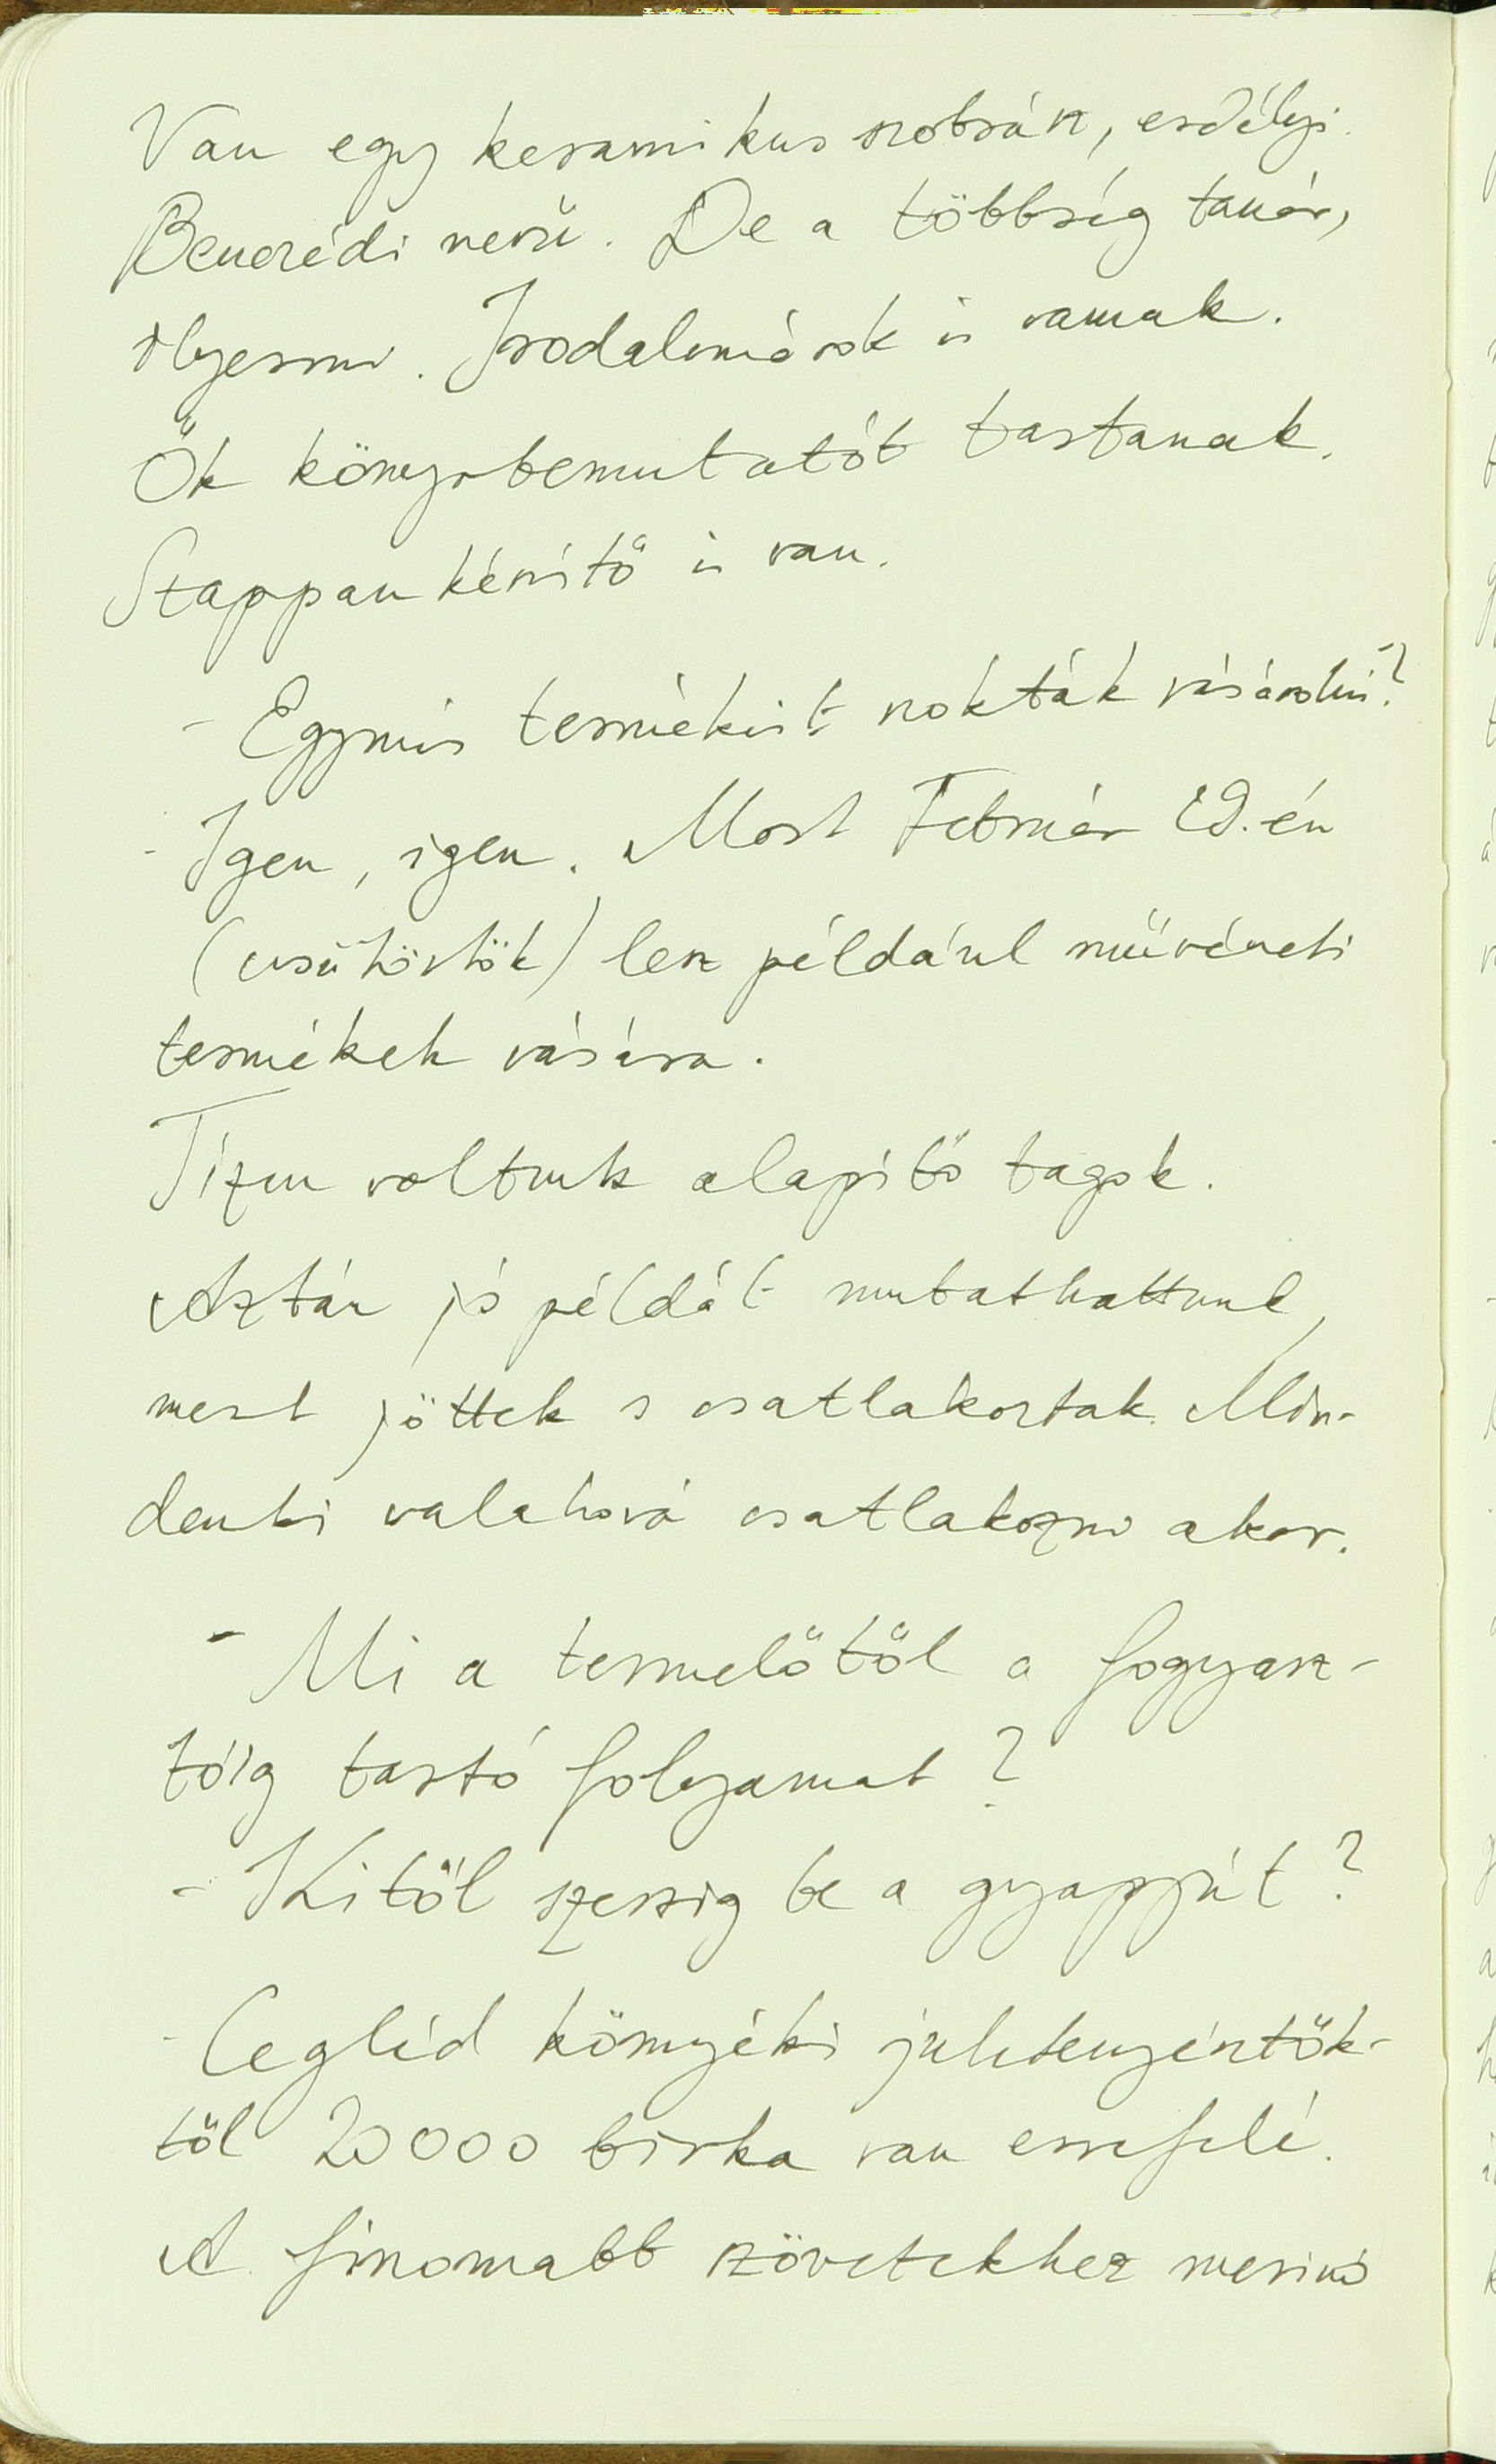 Van egy keramikus szobrász, erdélyi.
Benczédi nevű. De a többség tanár,
ilyesmi. Irodalmárok is vannak.
Ők könyvbemutatót tartanak.
Szappankészítő is van.
- Egymás termékeit szokták vásárolni?
- Igen, igen. Most Február 29.-én
(csütörtök) lesz például művészeti
termékek vására.
Tízen voltunk alapító tagok.
Aztán jó példát mutathattunk,
mert jöttek s csatlakoztak. Min-
denki valahová csatlakozni akar.
- Mi a termelőtől a fogyasz-
tóig tartó folyamat?
- Kitől szerzig be a gyapjút?
- Cegléd környéki juhtenyésztők-
től 20000 birka van errefelé.
A finomabb szövetekhez merinó